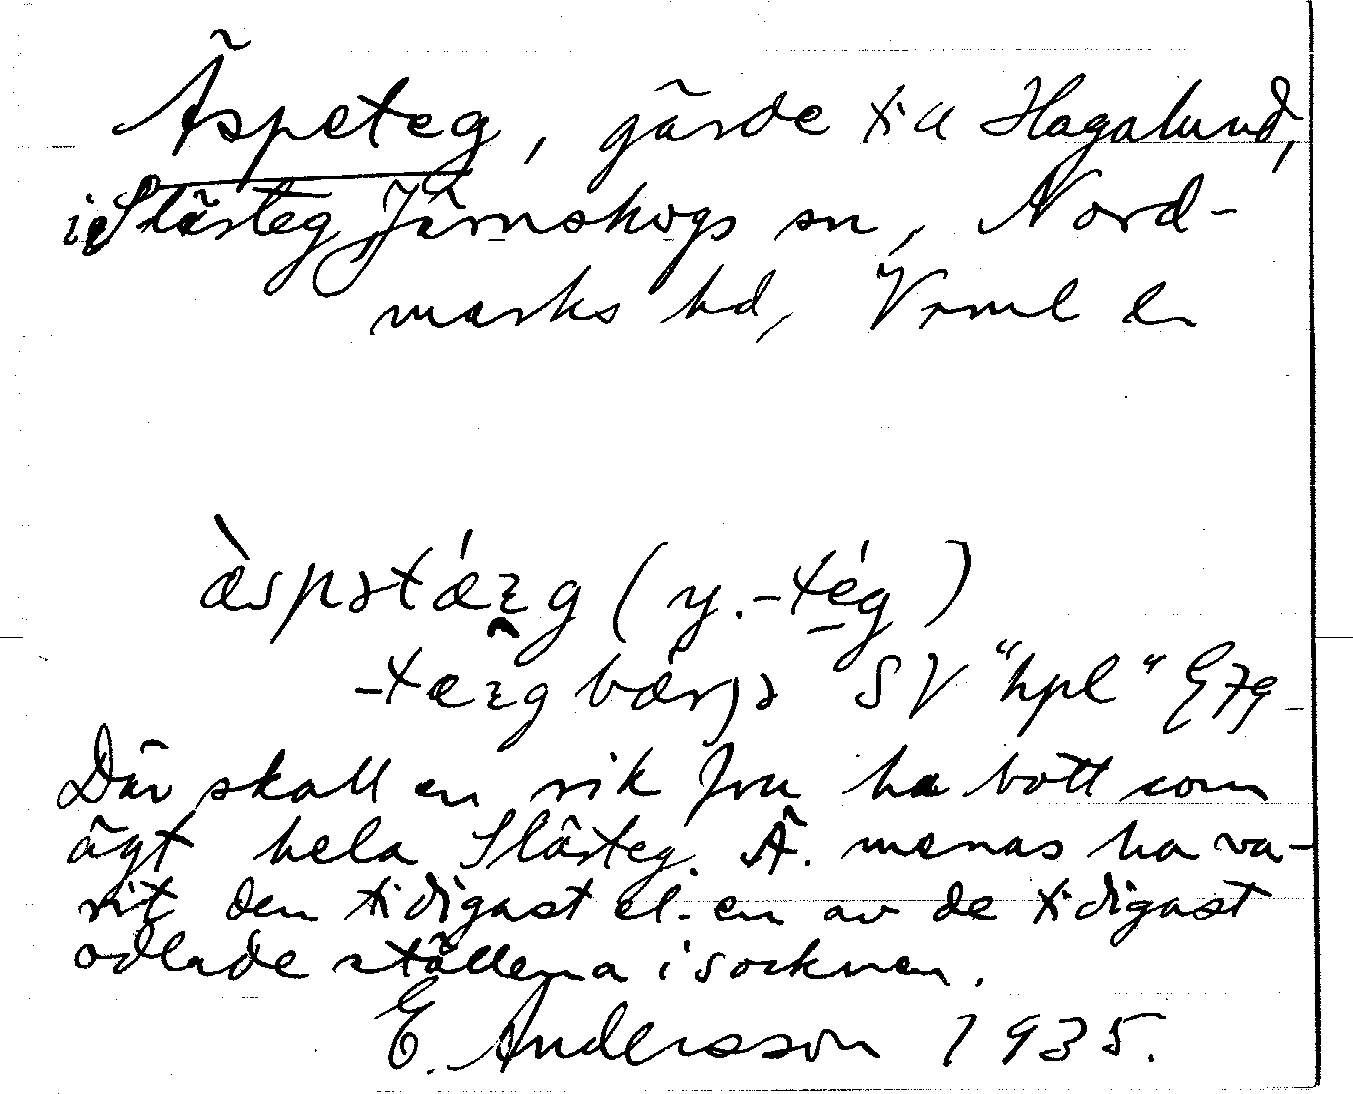 Äspeteg, gärde t. a Hagalund,
i Slärteg Järnskogs sn, Nord-
marks hd, Vrml l
æ̀spətǽrg (y. -tég)
-tærg bærjə SV "hpl" E79
Där skall en rik fru ha bott som
ägt hela Slärteg. Ä. menas ha va-
rit den tidigast el. en av de tidigast
odlade ställena i socknen.
E. Andersson 1935.